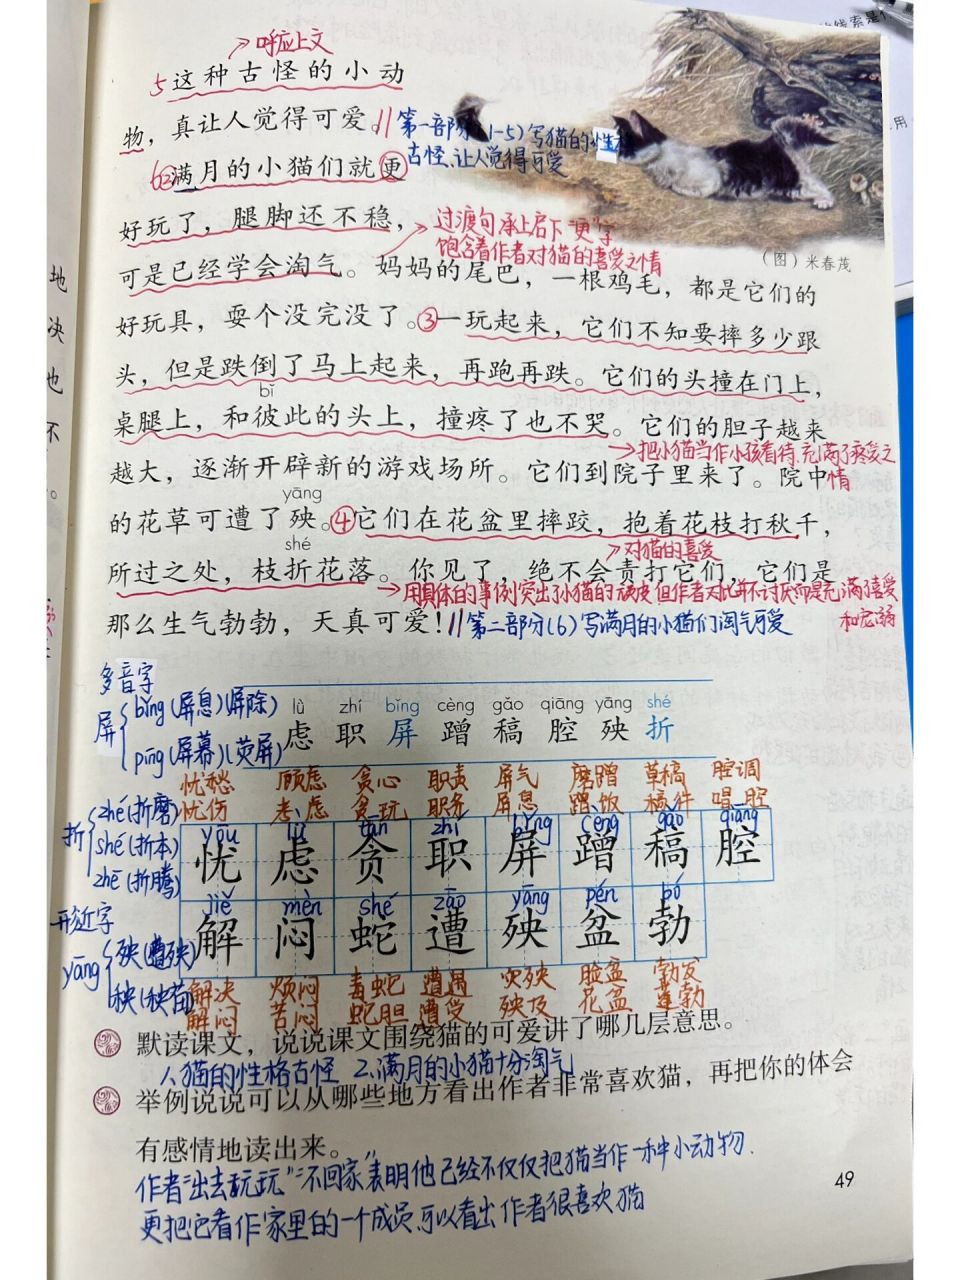 呼应上文
5这种古怪的小动
物，真让人觉得可爱。//第一部分(1-5)写猫的性格
古怪、让人觉得可爱
6②满月的小猫们就更
好玩了，腿脚还不稳，
过渡句承上启下"更"字
饱含着作者对猫的喜爱之情
可是已经学会淘气。妈妈的尾巴，一根鸡毛，都是它们的
（图）米春茂
好玩具，耍个没完没了。③一玩起来，它们不知要摔多少跟
头，但是跌倒了马上起来，再跑再跌。它们的头撞在门上，
bǐ
桌腿上，和彼此的头上，撞疼了也不哭。它们的胆子越来
把小猫当作小孩看待,充满了疼爱之
情
越大，逐渐开辟新的游戏场所。它们到院子里来了。院中
yāng
的花草可遭了殃。④它们在花盆里摔跤，抱着花枝打秋千，
shé
对猫的喜爱
所过之处，枝折花落。你见了，绝不会责打它们，它们是
用具体的事例突出小猫的顽皮,但作者对此并不讨厌而是充满喜爱
和宠溺
那么生气勃勃，天真可爱！//第二部分(6)写满月的小猫们淘气可爱
多音字
屏 bǐng(屏息)(屏除)
píng(屏幕)(荧屏)
lǜ zhí bǐng cèng gǎo qiāng yāng shé
虑 职 屏 蹭 稿 腔 殃 折
忧愁 顾虑 贪心 职责 屏气 磨蹭 草稿 腔调
忧伤 考虑 贪玩 职务 屏息 蹭饭 稿件 唱腔
折 zhé(折磨)
shé(折本)
zhē(折腾)
yōu lǜ tān zhí píng cèng gǎo qiāng
忧 虑 贪 职 屏 蹭 稿 腔
jiě mèn shé zāo yāng pén bó
解 闷 蛇 遭 殃 盆 勃
形近字
yāng 殃(遭殃)
秧(秧苗)
解决 烦闷 毒蛇 遭遇 灾殃 脸盆 勃发
解闷 苦闷 蛇胆 遭受 殃及 花盆 蓬勃
默读课文，说说课文围绕猫的可爱讲了哪几层意思。
1.猫的性格古怪 2.满月的小猫十分淘气
举例说说可以从哪些地方看出作者非常喜欢猫，再把你的体会
有感情地读出来。
作者"出去玩玩""不回家"表明他已经不仅仅把猫当作一种小动物.
更把它看作家里的一个成员,可以看出作者很喜欢猫
49
地
决
也
不
。